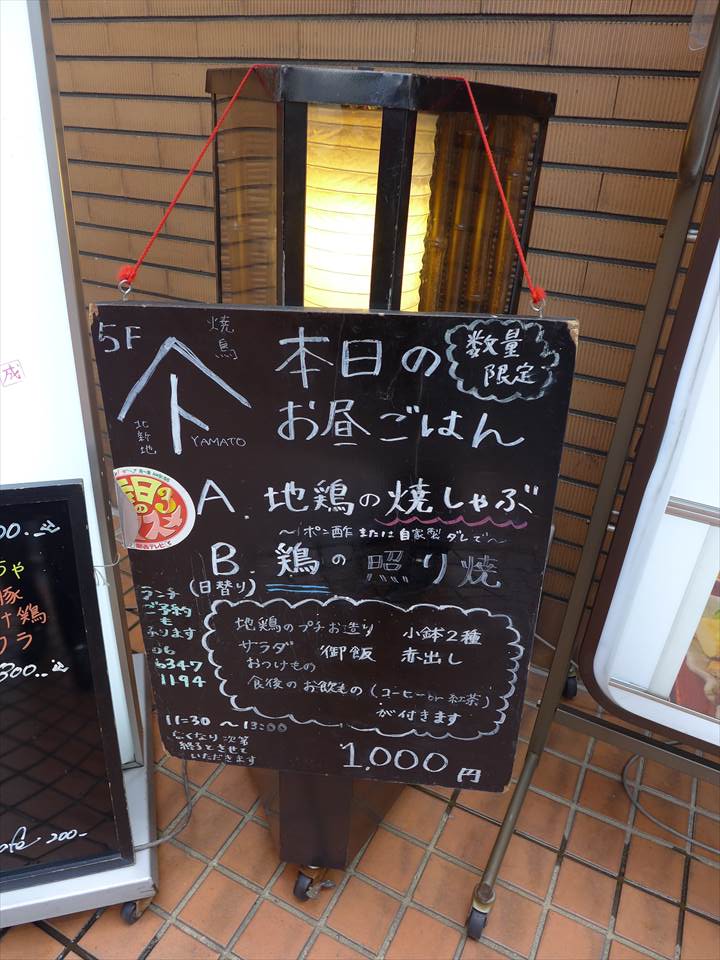 5F
焼鳥
北新地
YAMATO
本日の
お昼ごはん
数量
限定
A. 地鶏の焼しゃぶ
〜ポン酢 または 自家製 ダレで〜
B. 鶏の照り焼
(日替り)
ランチ
ご予約
も
承ります
06
6347
1194
地鶏のプチお造り 小鉢2種
サラダ 御飯 赤出し
おつけもの
食後のお飲もの (コーヒー or 紅茶)
が付きます
11:30 〜 13:00
亡くなり次第
終了とさせて
いただきます
1,000円
成
00..
ちゃ
豚
け鶏
ラ
800..
200-